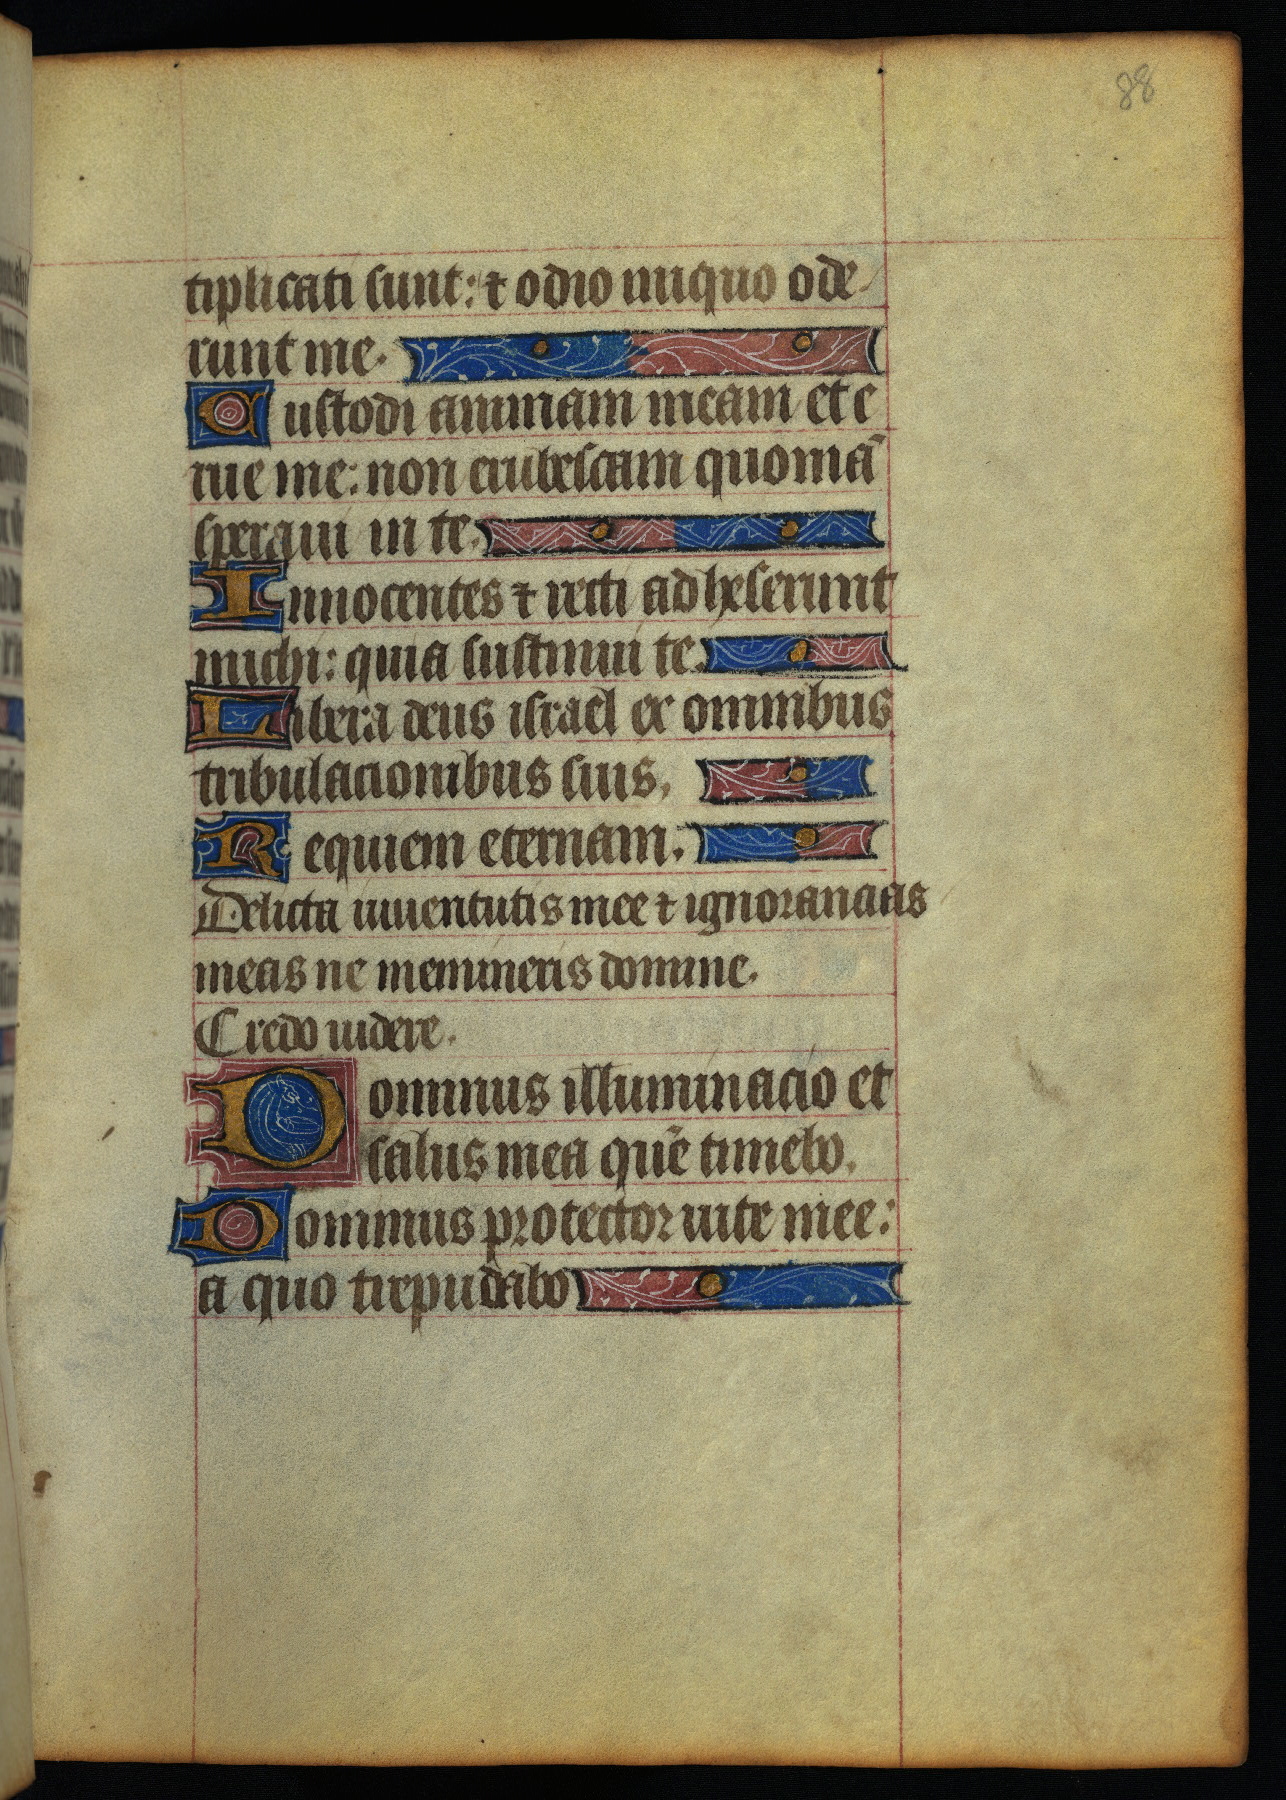 88
tiplicati sunt: ⁊ odio iniquo ode
runt me.
Custodi animam meam et e
rue me: non erubescam quoniā
speraui in te.
Innocentes ⁊ recti adheserunt
michi: quia sustinui te.
Libera deus israel ex omnibus
tribulacionibus suis.
Requiem eternam.
Delicta iuuentutis mee ⁊ ignorancias
meas ne memineris domine.
Credo uidere.
Dominus illuminacio et
salus mea quē timebo.
Dominus protector uite mee:
a quo trepudabo